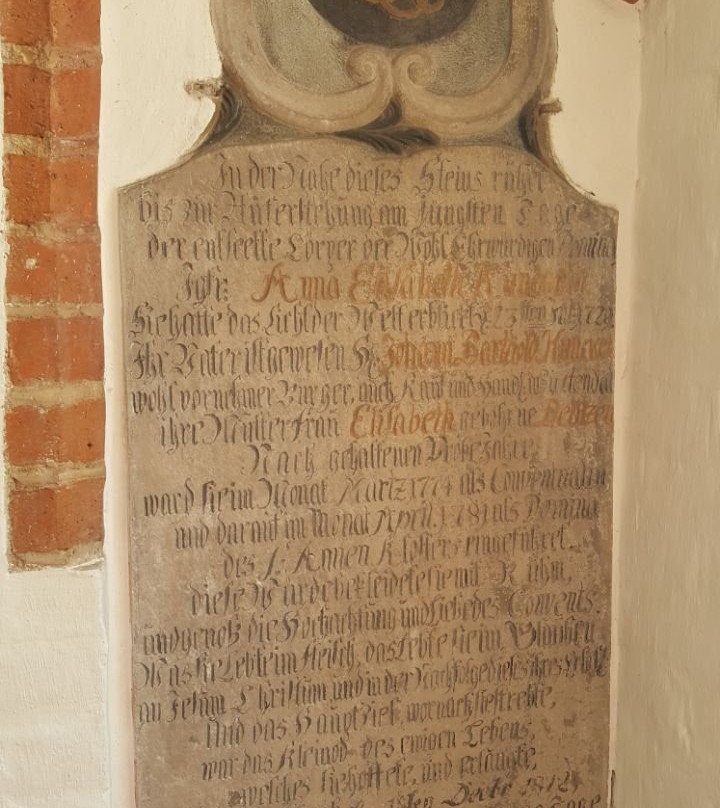 In der Nahe dieses Steins ruhet
bis zur Auferstehung am Jüngsten Tage
der entseelte Cörper der Wohl Ehrwürdigen Domina
Jgfr: Anna Elisabeth
Sie hatte das Licht der Welt erblickt 23sten
Ihr Vater ist gewesen Hr. Johann Barthold
wohl vornehmer Burger, auch Kauf und Handelsmann
ihre Mutter Frau Elisabeth gebohrne
Nach gehaltenen Probe Jahre,
ward sie im Monat Martz 1774 als Conventualin
und darauf im Monat April 1781 als Domina
des S: Annen Klosters eingeführet
diese Würde bekleidete sie mit Ruhm,
und genoß die Hochachtung und Liebe des Convents.
Was sie Lebte im fleisch, das lebte sie im Glauben
an Jesum Christum und in der Nachfolge dieses ihres
Und das Haupt Ziel, wornach sie strebte,
war das Kleinod des ewigen Lebens,
welches sie hoffete, und erlangte,
sten Decbr 1812